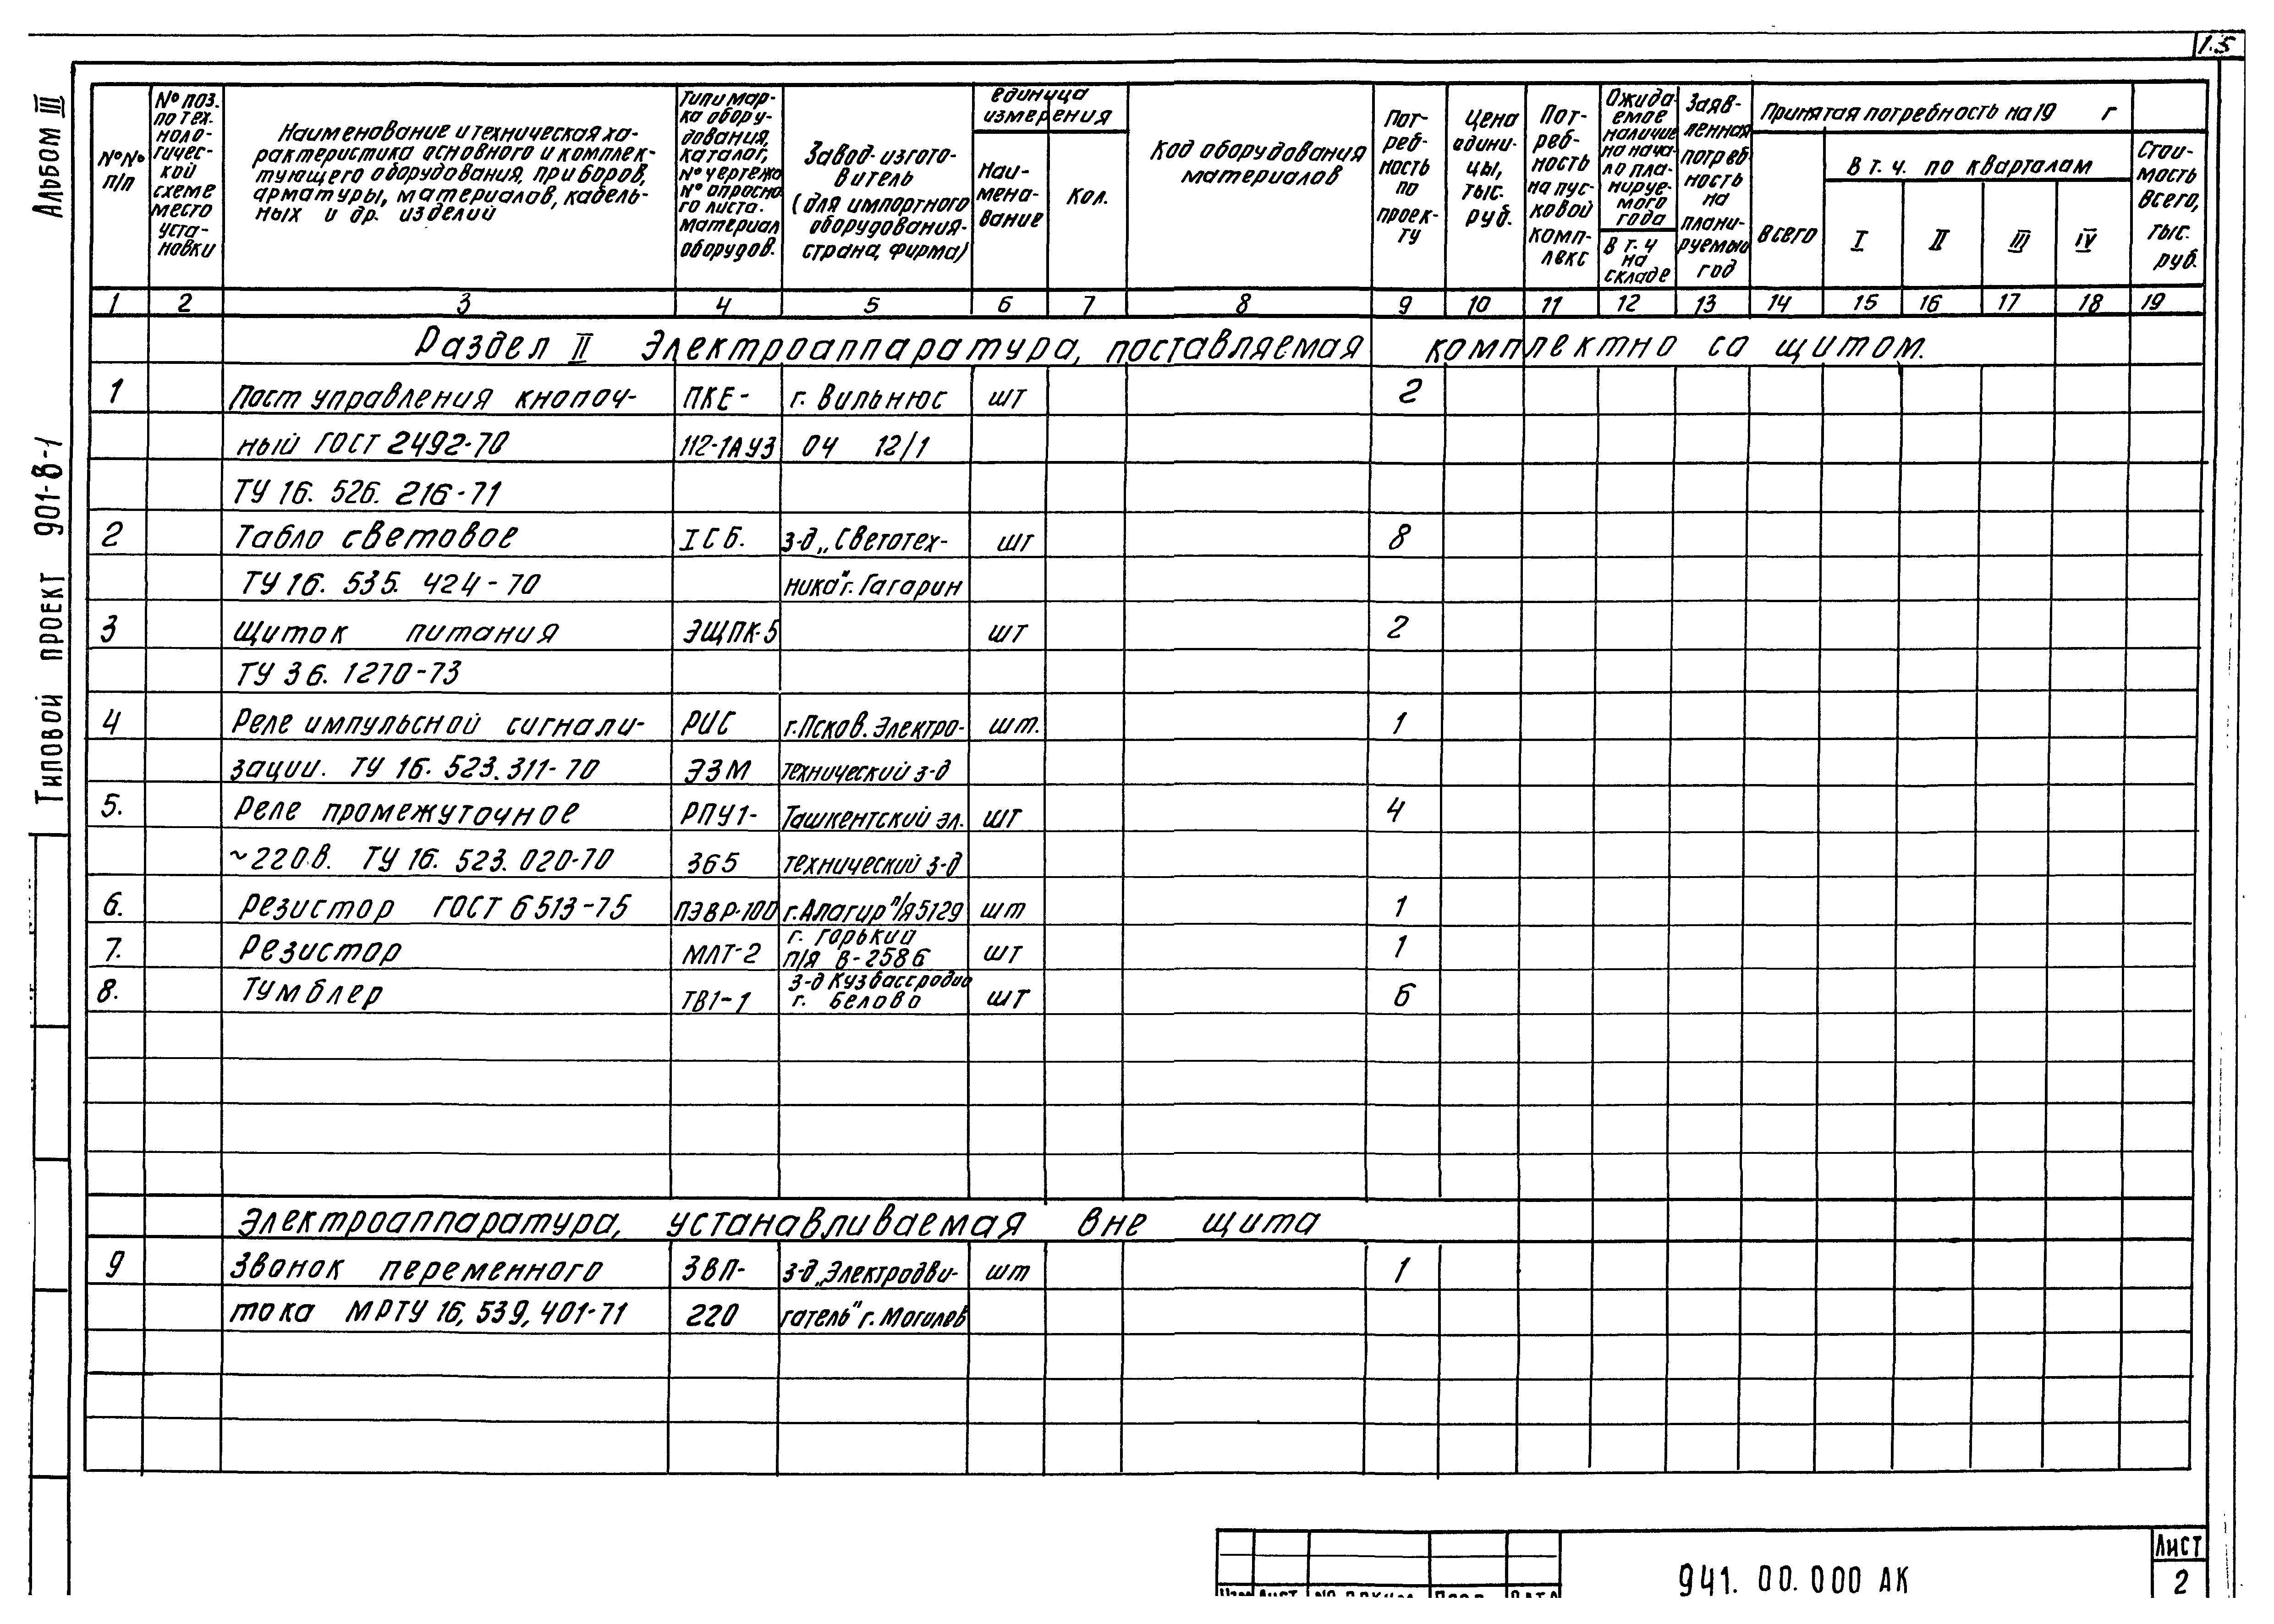 15
Альбом III
Типовой проект 901-8-1
№№ п/п
№ поз. по тех. ноло- гичес- кой схеме место уста- новки
Наименование и техническая ха-
рактеристика основного и комплек-
тующего оборудования, приборов,
арматуры, материалов, кабель-
ных и др. изделий
Тип и мар- ка обору- дования, каталог, № чертежа № опросно го листа. материал оборудов.
Завод-изгото- витель (для импортного оборудования- страна, фирма)
единица измерения
Наи- мено- вание
Кол.
Код оборудования материалов
Пот- реб- ность по проек- ту
Цена едини- цы, тыс. руб.
Пот- реб- ность на пус- ковой комп- лекс
Ожида- емое наличие на нача- ло пла- нируе- мого года
в т. ч на складе
Заяв- ленная потреб ность на плани- руемый год
Принятая потребность на 19 г
всего
В т. ч. по кварталам
I II III IV
Стои- мость всего, тыс. руб.
1 2 3 4 5 6 7 8 9 10 11 12 13 14 15 16 17 18 19
Раздел II Электроаппаратура, поставляемая комплектно со щитом.
1 Пост управления кнопоч- ПКЕ- г. Вильнюс шт 2
ный ГОСТ 2492-70 112-1АУ3 04 12/1
ТУ 16. 526. 216-71
2 Табло световое ІСБ. з-д „Светотех- шт 8
ТУ 16. 535. 424-70 ника" г. Гагарин
3 Щиток питания ЭЩПК-5 шт 2
ТУ 36. 1270-73
4 Реле импульсной сигнали- РИС г. Псков. Электро- шт. 1
зации. ТУ 16. 523. 311-70 ЭЗМ технический з-д
5. Реле промежуточное РПУ1- Ташкентский эл. шт 4
~220в. ТУ 16. 523. 020-70 365 технический з-д
6. Резистор ГОСТ 6513-75 ПЭВР-100 г. Алагир п/я 5129 шт 1
7. Резистор МЛТ-2 г. Горький п/я В-2586 шт 1
8. Тумблер ТВ1-1 з-д Кузбассрадио г. Белово шт 6
Электроаппаратура, устанавливаемая вне щита
9 Звонок переменного ЗВП- з-д „Электродви- шт 1
тока МРТУ 16, 539, 401-71 220 гатель" г. Могилев
941. 00. 000 АК
Лист
2